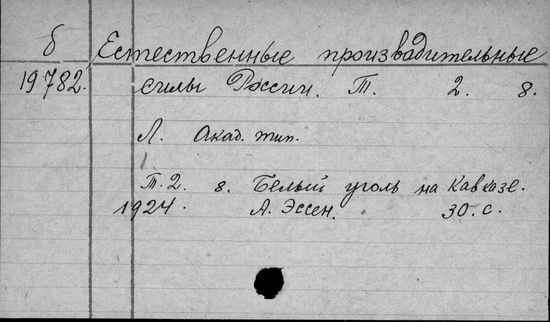 б Естественные производительные
19782. силы России. Т. 2. 8.
Л. Акад. тип.
Т. 2. 8. Белый уголь на Кавказе.
1924. А. Эссен. 30. с.